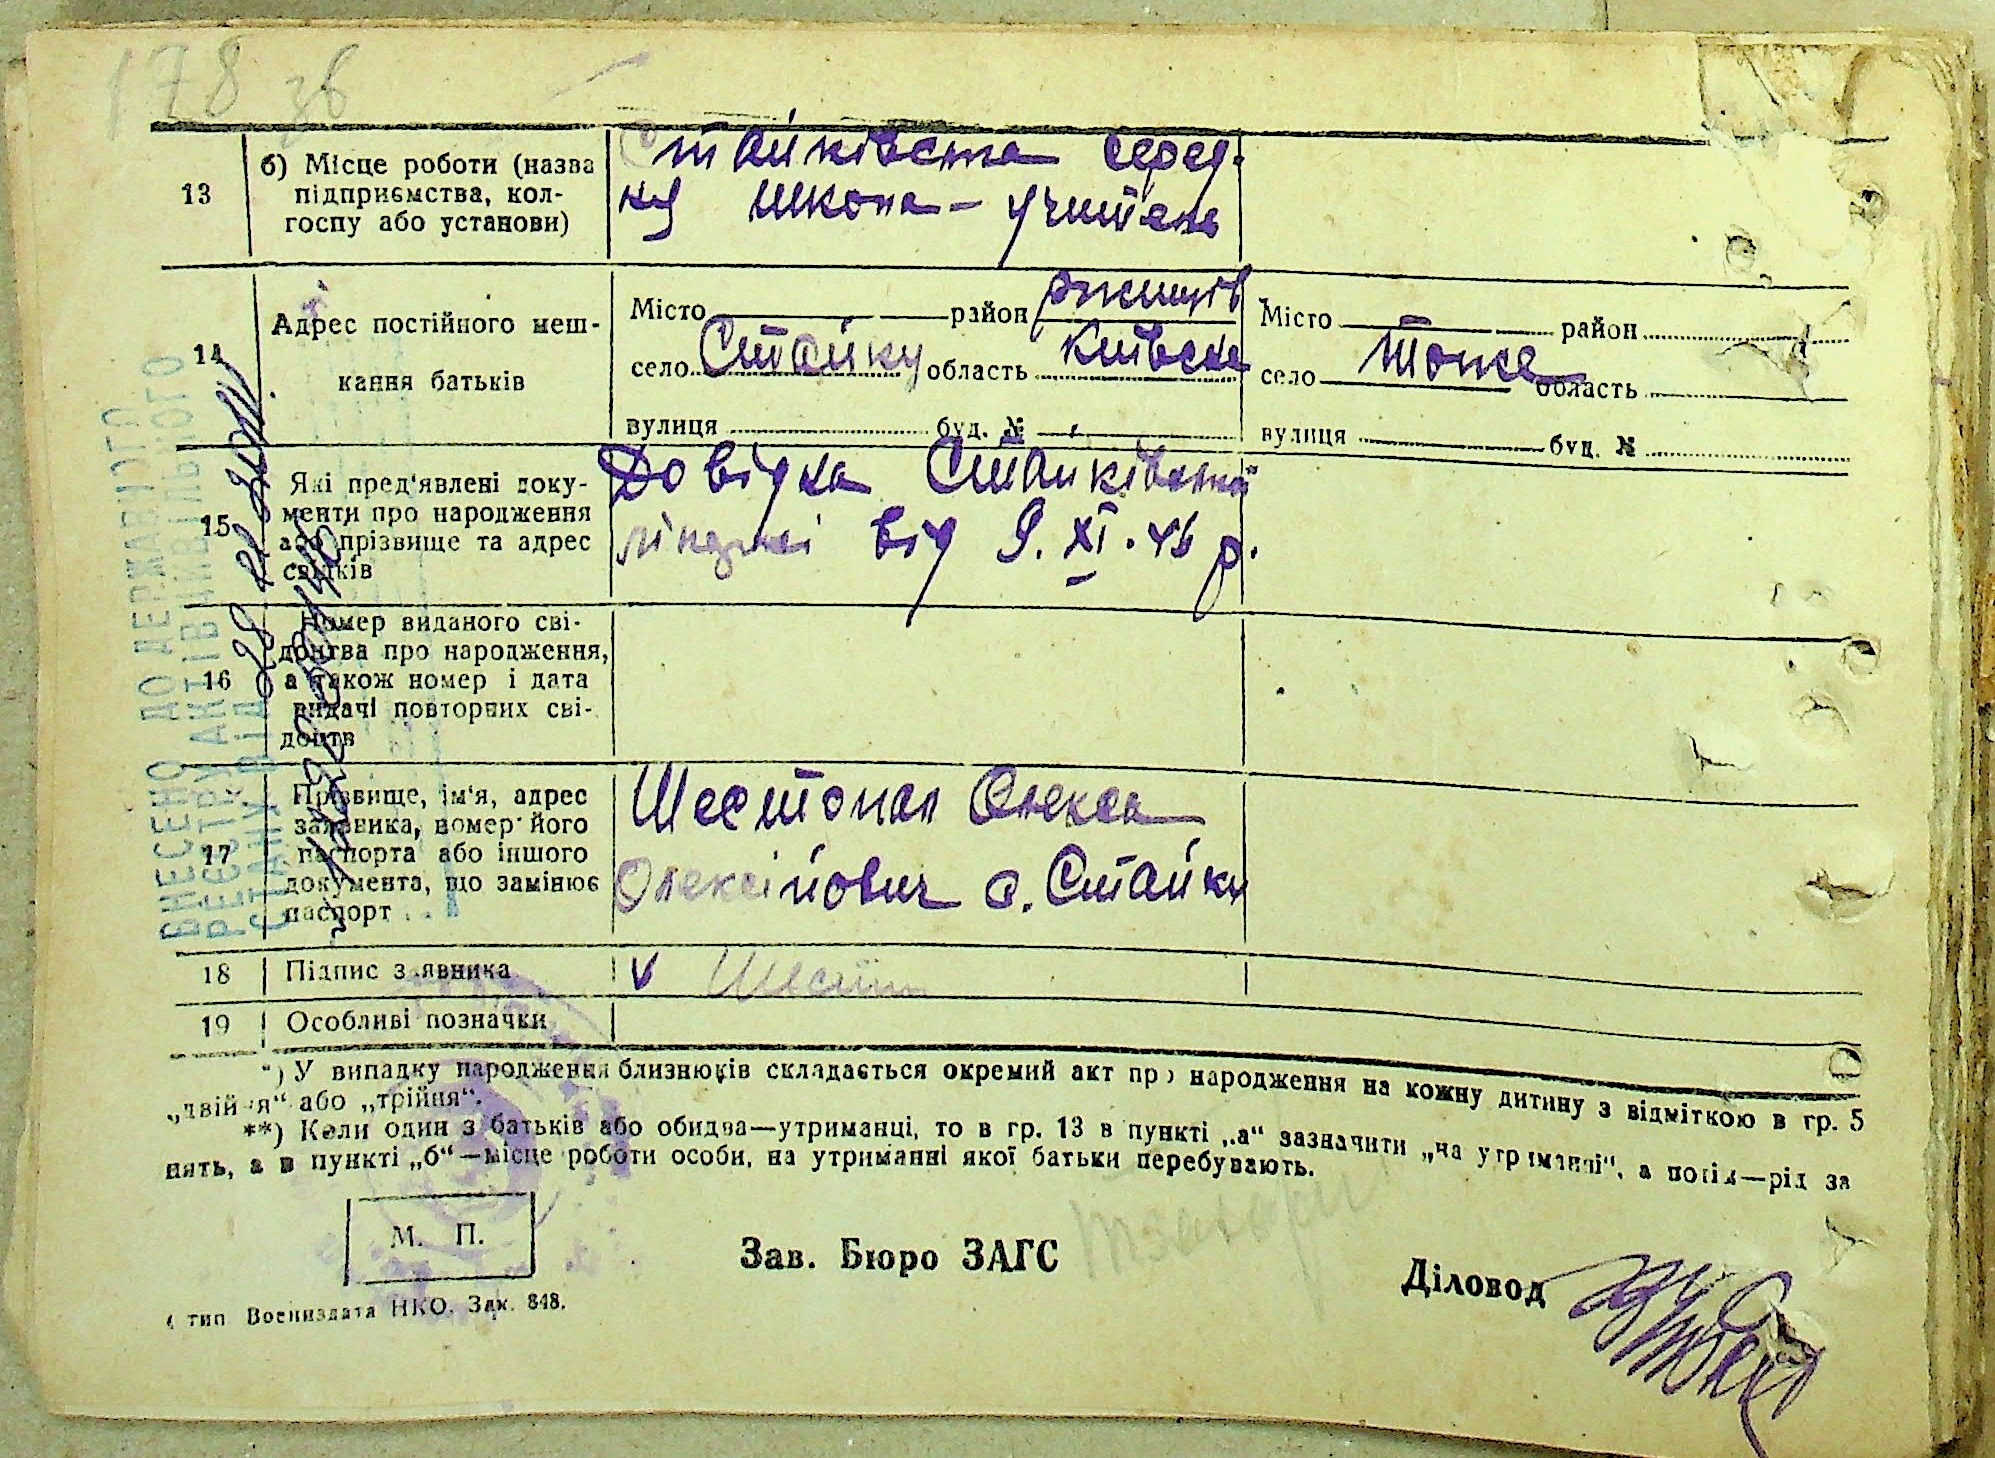 178 зв
13
б) Місце роботи (назва
підприємства, кол-
госпу або установи)
Стайківська серед.
школа - учитель
14
Адрес постійного меш-
кання батьків
Місто район Ржищів
село Стайки область Київська
вулиця буд. №
Місто район
село Тоже область
вулиця буд. №
15
Які пред'явлені доку-
менти про народження
або прізвище та адрес
свідків
Довідка Стайківської
від 9. XI. 46 р.
16
Номер виданого сві-
доцтва про народження,
а також номер і дата
видачі повторних сві-
доцтв
17
Прізвище, ім'я, адрес
заявника, номер його
паспорта або іншого
документа, що замінює
паспорт
Шестопал Олекса
Олексійович с. Стайки
18
Підпис заявника
V Шест
19
Особливі позначки
*) У випадку народження близнюків складається окремий акт про народження на кожну дитину з відміткою в гр. 5
„двійня" або „трійня".
**) Коли один з батьків або обидва—утриманці, то в гр. 13 в пункті „а" зазначити „на утриманні", а потім—рід за
нять, а в пункті „б"—місце роботи особи, на утриманні якої батьки перебувають.
М. П.
Зав. Бюро ЗАГС
Діловод
тип Воениздата НКО. Зак. 848.
ВНЕСЕНО ДО ДЕРЖАВНОГО
РЕЄСТРУ АКТІВ ЦИВІЛЬНОГО
СТАНУ ВІД